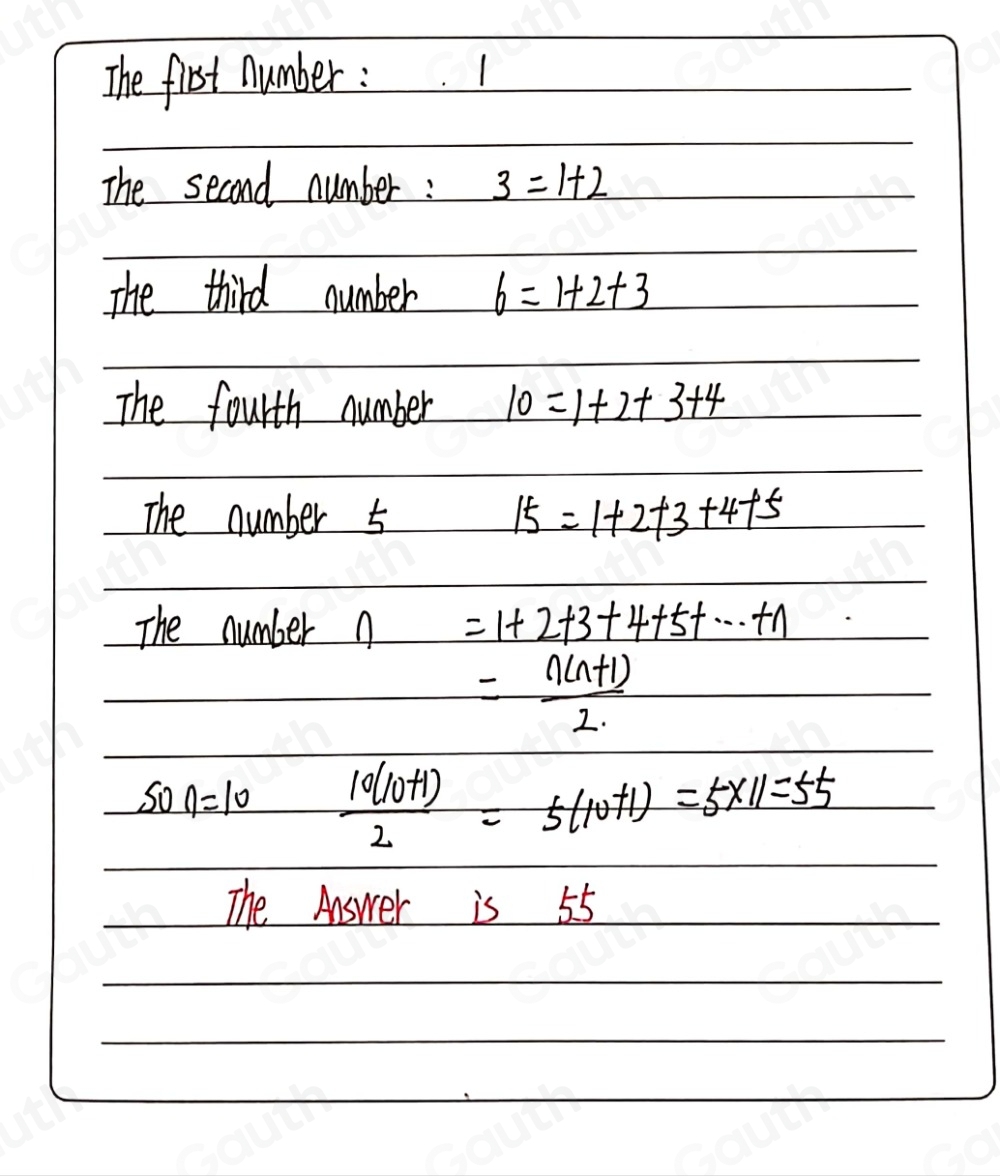 The first number: 1
The second number: 3 = 1+2
The third number 6 = 1+2+3
The fourth number 10 = 1+2+3+4
The number 5 15 = 1+2+3+4+5
The number n = 1+2+3+4+5+...+n
= n(n+1)/2.
So n=10 10(10+1)/2 = 5(10+1) = 5×11=55
The Answer is 55